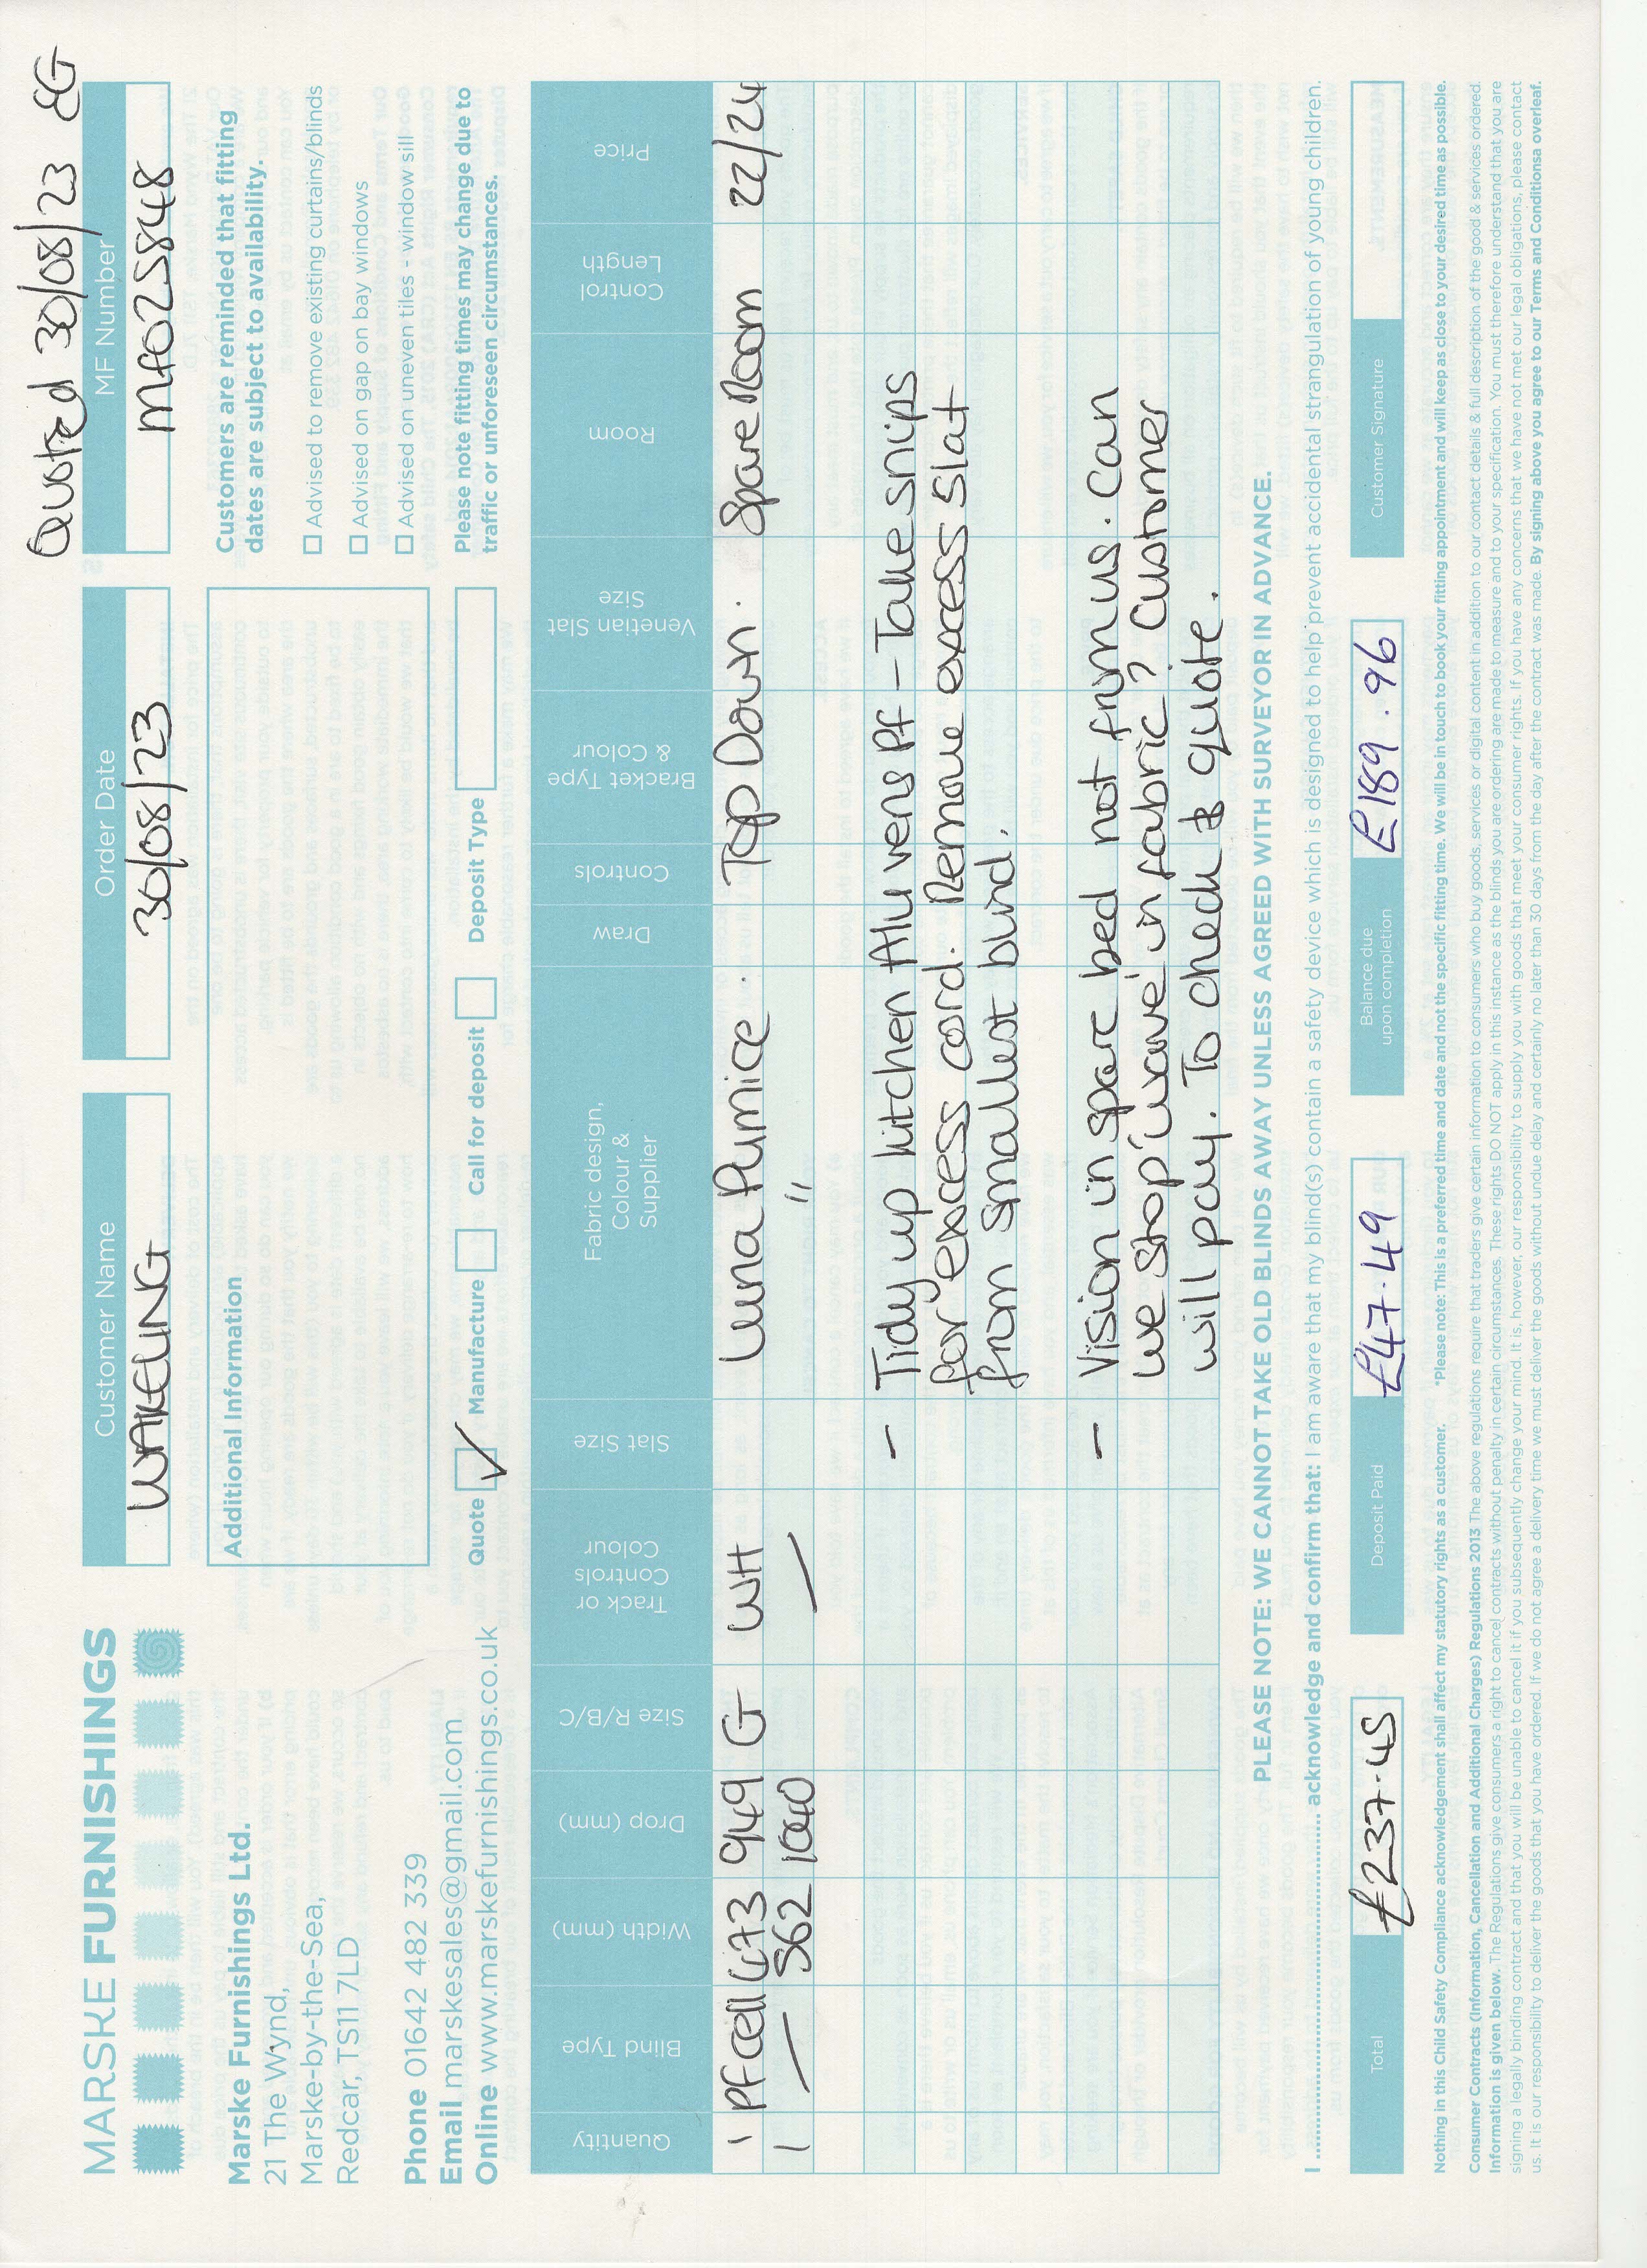 Quoted 30/08/23 EG
MARSKE FURNISHINGS
Marske Furnishings Ltd.
21 The Wynd,
Marske-by-the-Sea,
Redcar, TS11 7LD
Phone 01642 482 339
Email marskesales@gmail.com
Online www.marskefurnishings.co.uk
Customer Name
WAKELING
Order Date
30/08/23
MF Number
MF025848
Additional Information
Customers are reminded that fitting
dates are subject to availability.
Advised to remove existing curtains/blinds
Advised on gap on bay windows
Advised on uneven tiles - window sill
Please note fitting times may change due to
traffic or unforeseen circumstances.
Quote ✓ Manufacture Call for deposit Deposit Type
Quantity
Blind Type
Width (mm)
Drop (mm)
Size R/B/C
Track or
Controls
Colour
Slat Size
Fabric design,
Colour &
Supplier
Draw
Controls
Bracket Type
& Colour
Venetian Slat
Size
Room
Control
Length
Price
1 PF cell 473 949 G WH Luna Pumice. Top Down. Spare Room 22/24
1 — 562 1040 — "
– Tidy up kitchen Alu vens PF – Take snips
for excess cord. Remove excess slat
from smallest blind.
– Vision in spare bed not from us. Can
we stop 'wave' in fabric? Customer
will pay. To check & quote.
PLEASE NOTE: WE CANNOT TAKE OLD BLINDS AWAY UNLESS AGREED WITH SURVEYOR IN ADVANCE.
I ........................ acknowledge and confirm that: I am aware that my blind(s) contain a safety device which is designed to help prevent accidental strangulation of young children.
Total
£237.45
Deposit Paid
£47.49
Balance due
upon completion
£189.96
Customer Signature
Nothing in this Child Safety Compliance acknowledgement shall affect my statutory rights as a customer. *Please note: This is a preferred time and date and not the specific fitting time. We will be in touch to book your fitting appointment and will keep as close to your desired time as possible.
Consumer Contracts (Information, Cancellation and Additional Charges) Regulations 2013 The above regulations require that traders give certain information to consumers who buy goods, services or digital content in addition to our contact details & full description of the good & services ordered.
Information is given below. The Regulations give consumers a right to cancel contracts without penalty in certain circumstances. These rights DO NOT apply in this instance as the blinds you are ordering are made to measure and to your specification. You must therefore understand that you are
signing a legally binding contract and that you will be unable to cancel it if you subsequently change your mind. It is, however, our responsibility to supply you with goods that meet your consumer rights. If you have any concerns that we have not met our legal obligations, please contact
us. It is our responsibility to deliver the goods that you have ordered. If we do not agree a delivery time we must deliver the goods without undue delay and certainly no later than 30 days from the day after the contract was made. By signing above you agree to our Terms and Conditionsa overleaf.